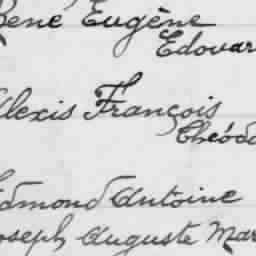 René Eugène
Edouar
Alexis François
Théod
Edmond Antoine
Joseph Auguste Mar